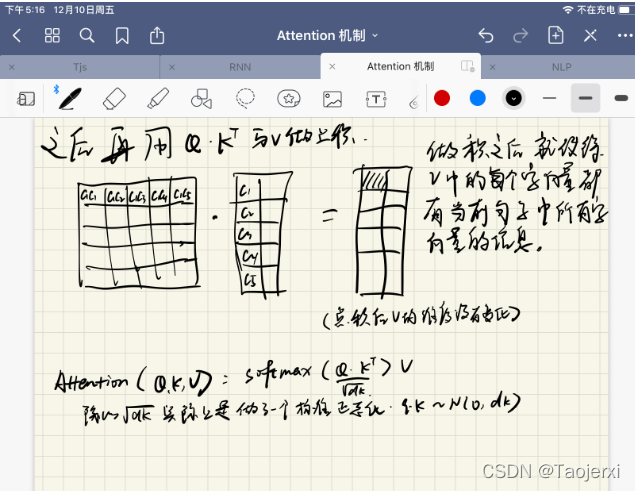 下午5:16 12月10日周五
不在充电
Attention 机制
Tjs
RNN
Attention 机制
NLP
之后再用 Q·Kᵀ 与V做点积..
做积之后就使得
V中的每个字向量都
有当前句子中所有字
向量的信息。
C₁C₁ C₁C₂ C₁C₃ C₁C₄ C₁C₅
·
C₁
C₂
C₃
C₄
C₅
=
(点积后V的维度没有变化)
Attention(Q,K,V) = softmax(Q·Kᵀ/√dk)V
除以√dk 实际上是做了一个标准正态化. q·k ~ N(0, dk)
CSDN @Taojerxi